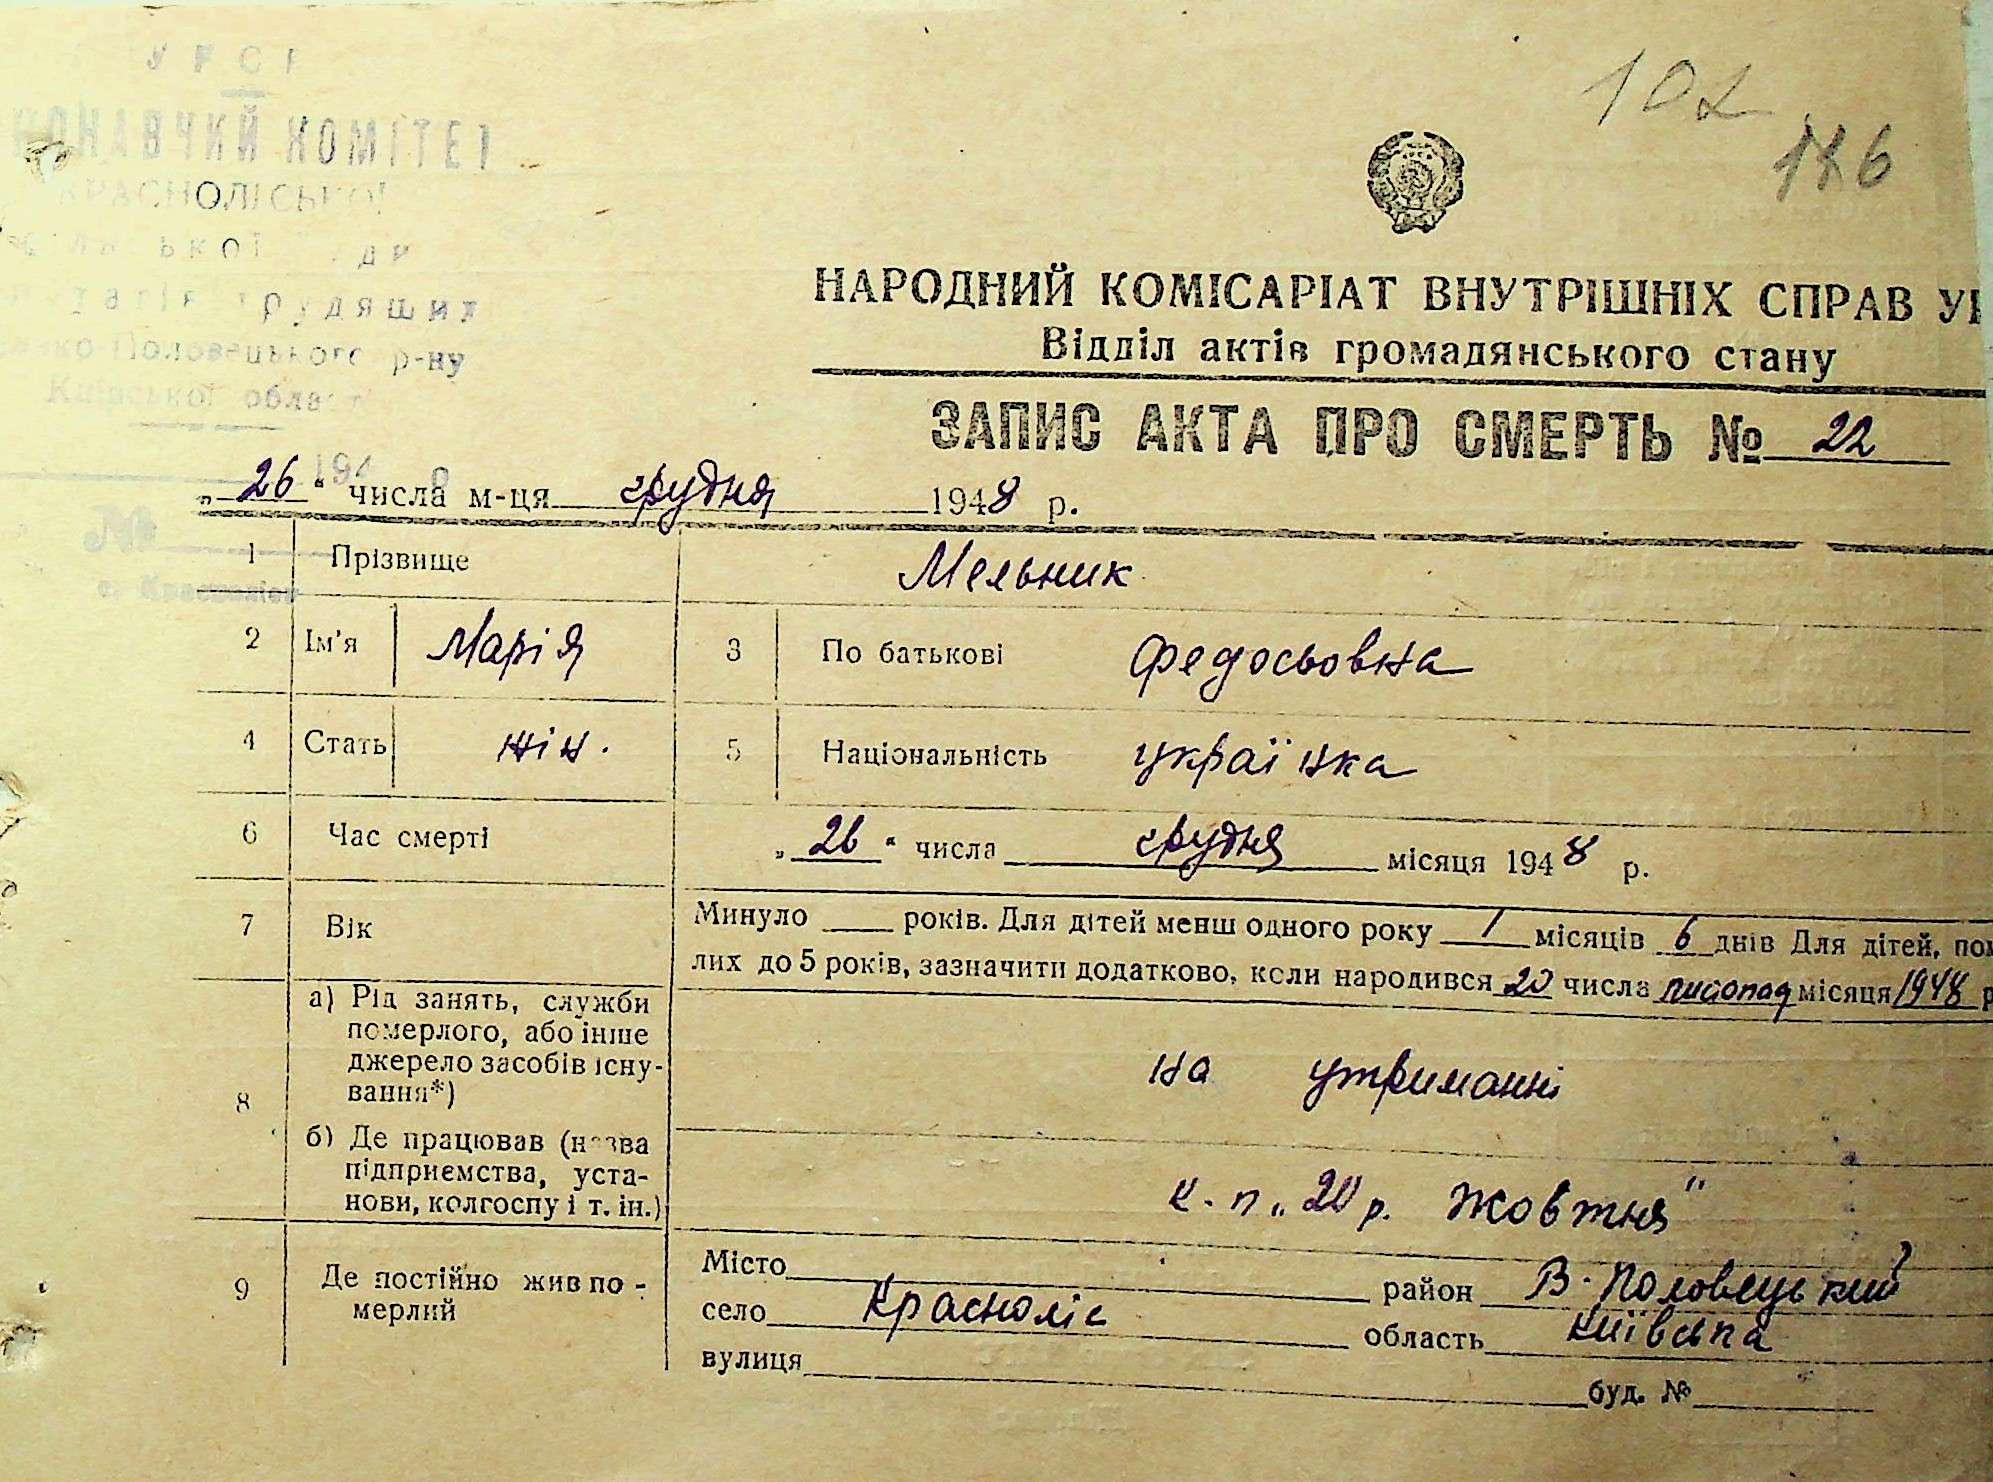 КОМІТЕТ
КРАСНОЛІСЬКОЇ
трудящих
Половецького р-ну
Київської області
102
НАРОДНИЙ КОМІСАРІАТ ВНУТРІШНІХ СПРАВ
Відділ актів громадянського стану
ЗАПИС АКТА ПРО СМЕРТЬ № 22
„26“ числа м-ця грудня 1948 р.
1 Прізвище Мельник
2 Ім'я Марія 3 По батькові Федосьовна
4 Стать жін. 5 Національність українка
6 Час смерті „26“ числа грудня місяця 1948 р.
7 Вік Минуло ____ років. Для дітей менш одного року 1 місяців 6 днів Для дітей, пом
лих до 5 років, зазначити додатково, коли народився 20 числа листопад місяця 1948 р
8 а) Рід занять, служби
померлого, або інше
джерело засобів існу-
вання*)
на утриманні
б) Де працював (назва
підприємства, уста-
нови, колгоспу і т. ін.)
к-п „20 р. Жовтня"
9 Де постійно жив по-
мерлий
Місто ____ район В-Половецький
село Красноліс область Київська
вулиця ____ буд. № ____